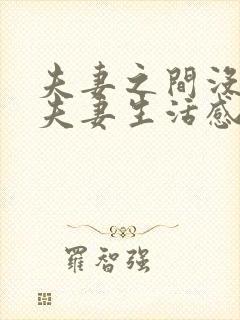 夫妻之間沒
夫妻生活感
羅智强